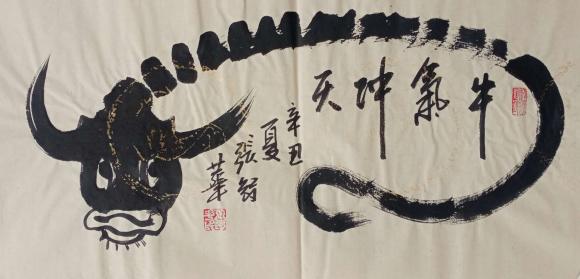 牛氣沖天
辛丑
夏
張
華